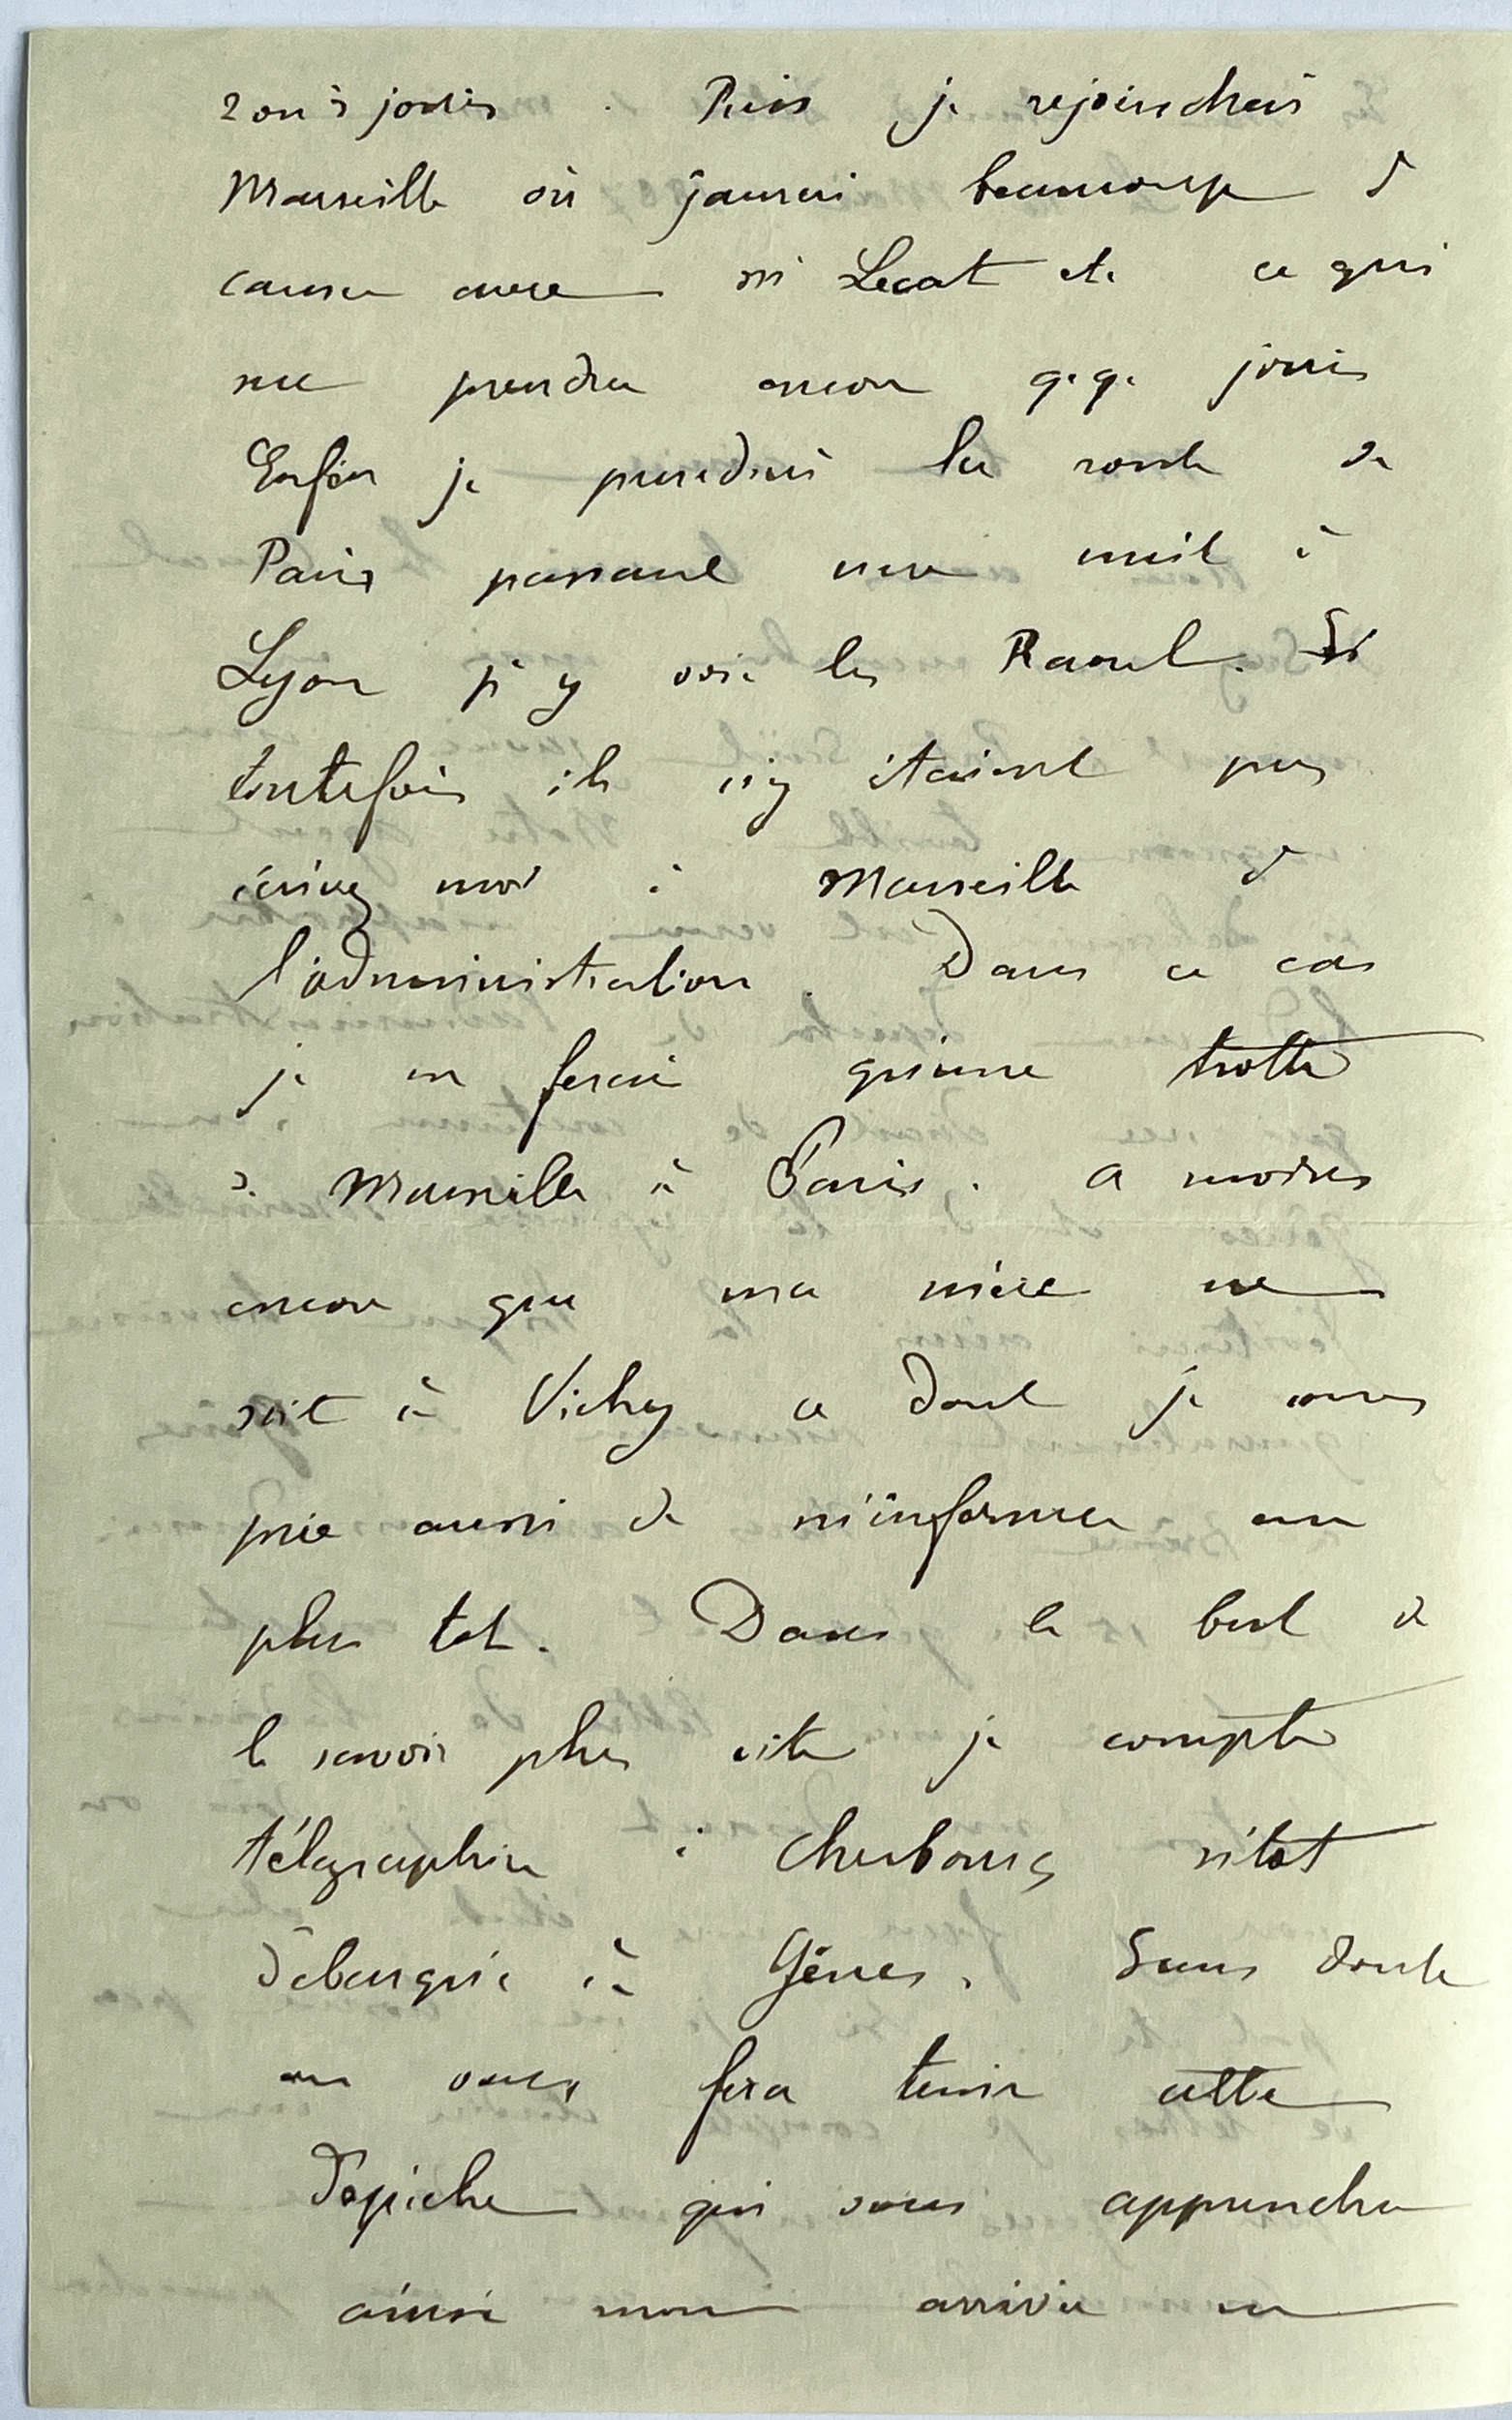 2 ou 3 jours. Puis je rejoindrais
Marseille où j'aurai beaucoup à
causer avec Mr Lecat etc ce qui
me prendra encore q.q. jours
Enfin je prendrais la route de
Paris passant une nuit à
Lyon pr y voir les Raoul. Si
toutefois ils n'y étaient pas
écrivez moi à Marseille à
l'administration. Dans ce cas
je ne ferai qu'une trotte
de Marseille à Paris. A moins
encore que ma mère ne
soit à Vichy ce dont je vous
prie aussi de m'informer au
plus tot. Dans le but de
le savoir plus vite je compte
télégraphier à Cherbourg sitot
débarqué à Gênes. Sans doute
on vous fera tenir cette
dépêche qui vous apprendra
ainsi mon arrivée en